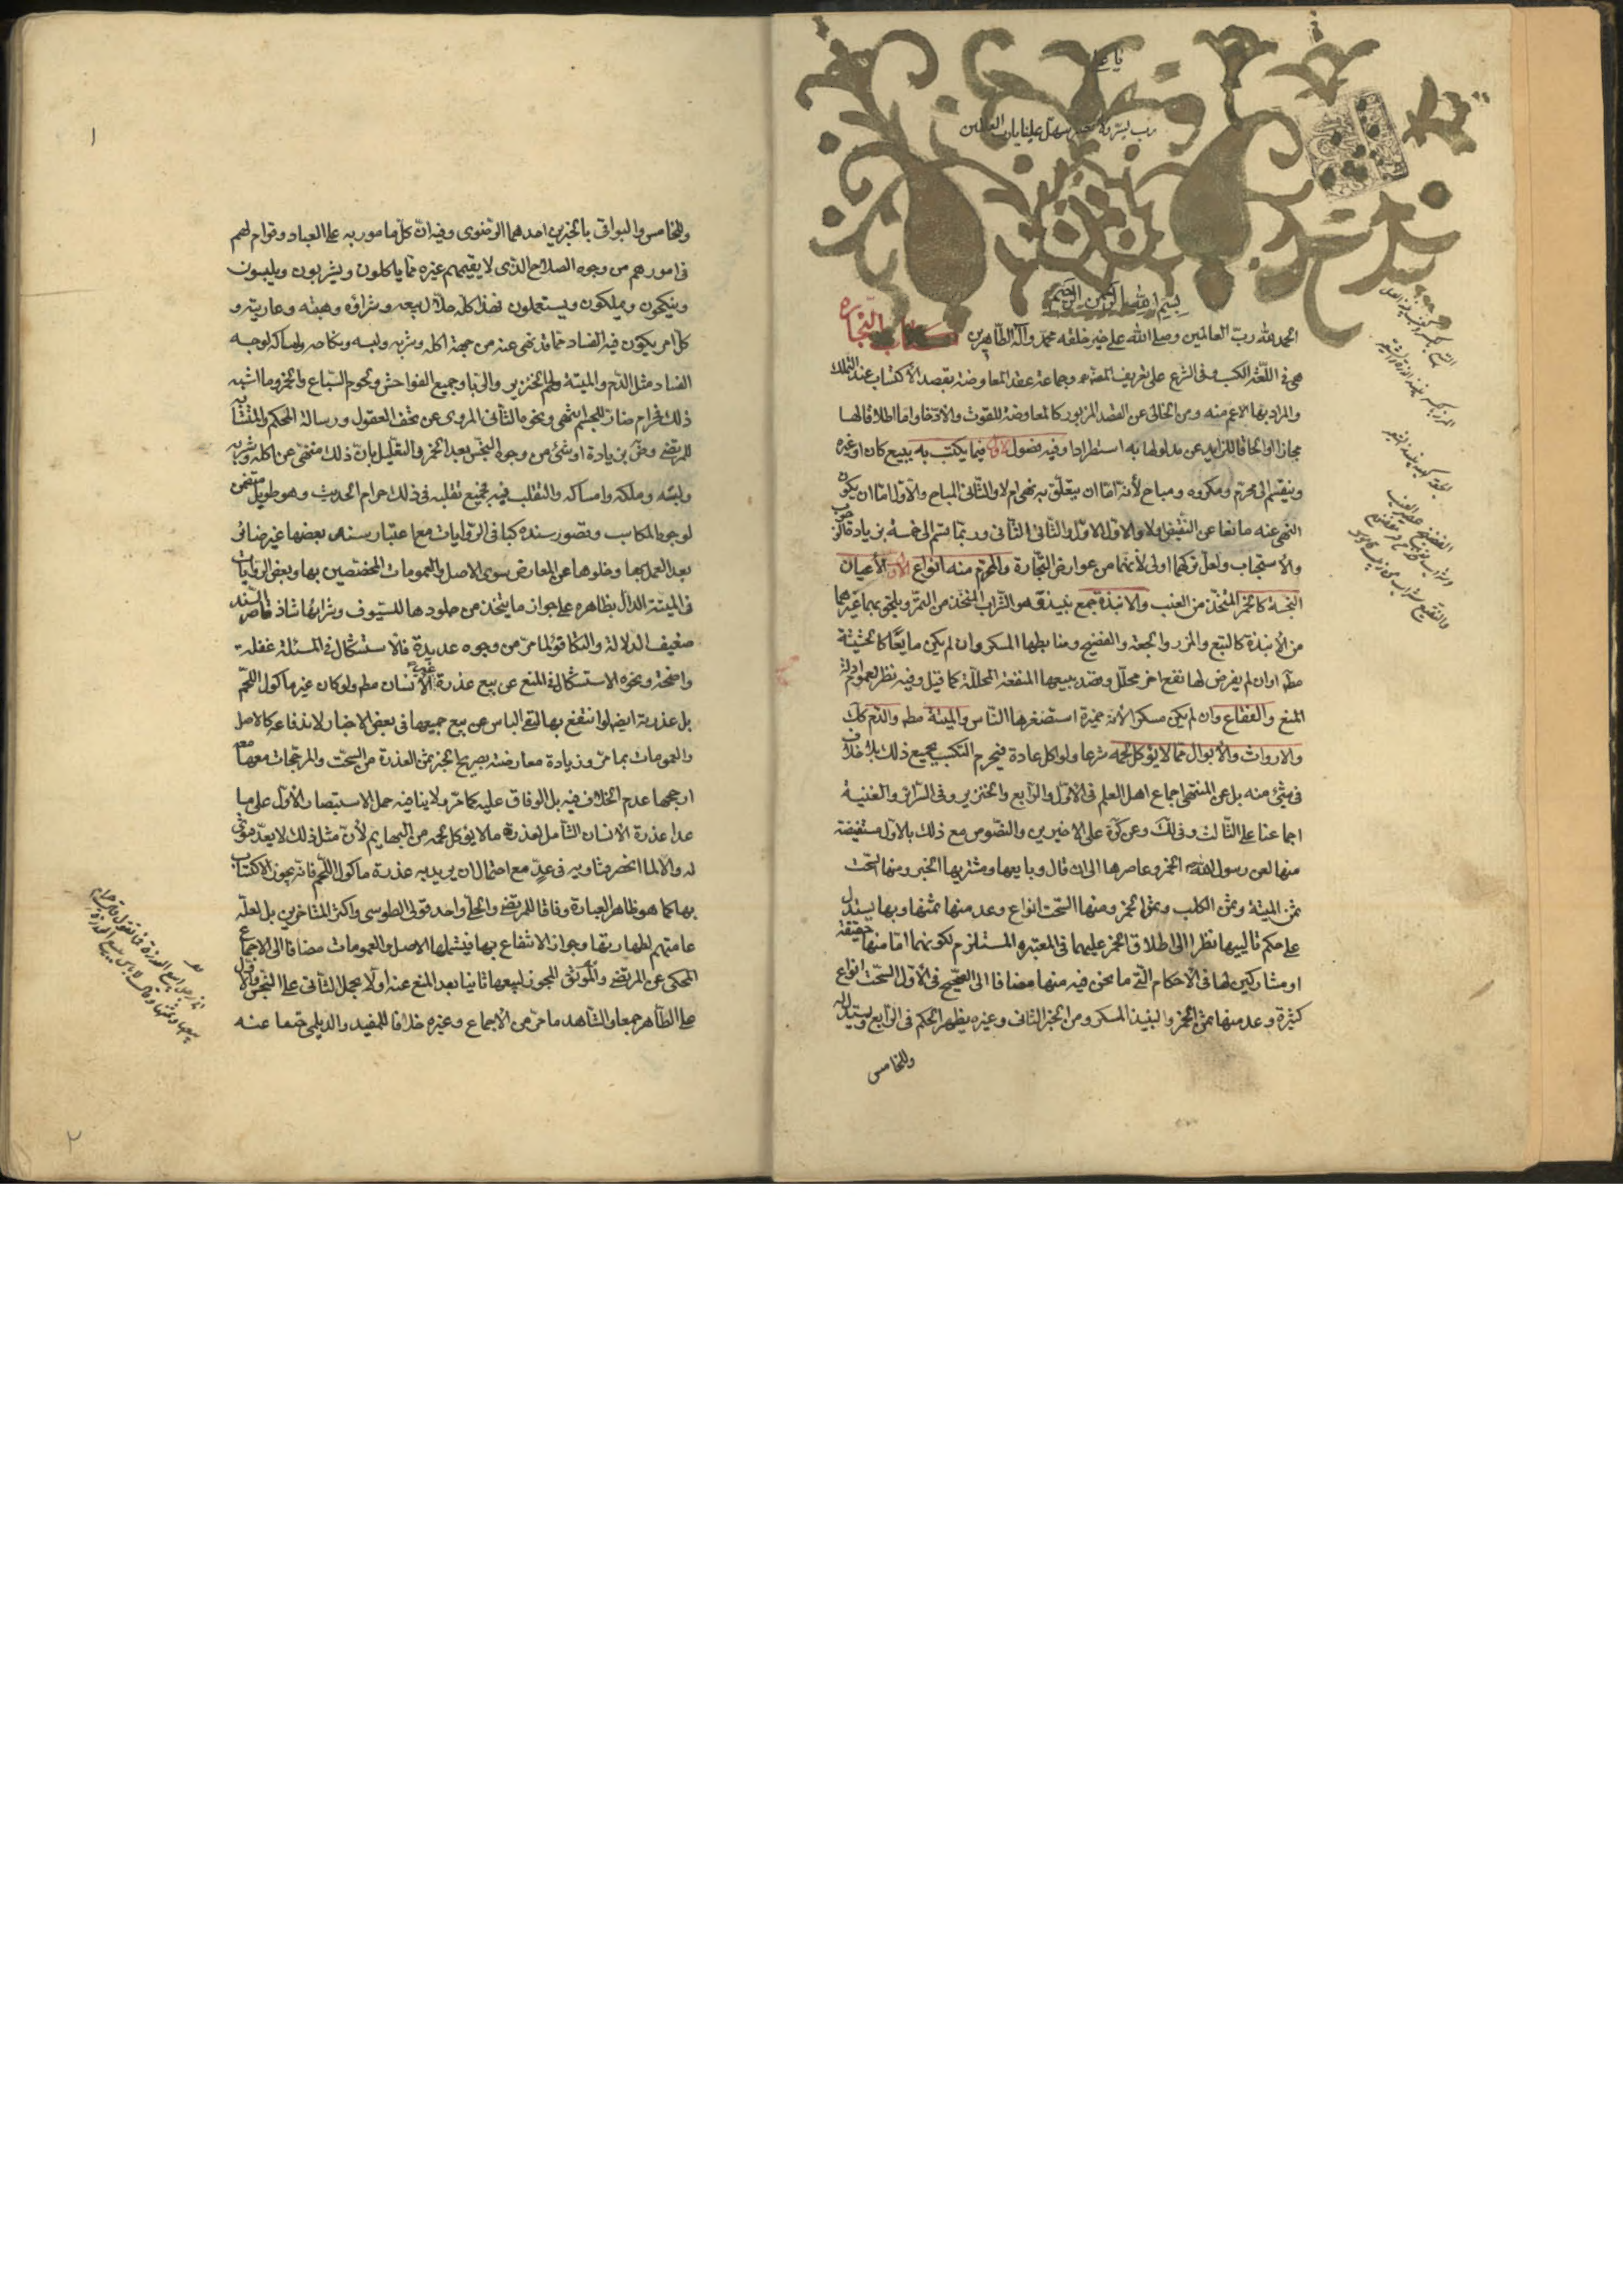 رب يسر ولا تعسر سهل علينا يا رب العالمين
بسم الله الرحمن الرحيم
كتاب التجارة
الحمد لله ربّ العالمين وصلى الله على خير خلقه محمّد وآله الطاهرين
هى فى اللّغة الكسب وفى الشرع على تعريف المصنف وجماعة عقد المعاوضة بقصد الأكتساب عند التملك
والمراد بها الاعم منه ومن الخالى عن القصد المزبور كالمعاوضة للقوت والادّخار واما اطلاقا لها
مجازا او الحاقا للزايد عن مدلولها به استطرادا وفيه فصول الأول فيما يكتسب به ببيع كان او غيره
وينقسم الى محرّم ومكروه ومباح لأنه امّا ان يتعلّق به نهى ام لا والثّانى المباح والأوّل امّا ان يكون
النهى عنه مانعا عن النقيض اولا والاوّل الاوّل والثّانى الثّانى وربّما قسّم الى خمسة بزيادة الوجوب
والأستحباب ولعلّ تركهما اولى لأنهما من عوارض التّجارة والمحرّم منه انواع الأوّل الأعيان
النجسة كالخمر المتّخذ من العنب والانبذة جمع نبيذ وهو الشّراب المتّخذ من التمر ويلحق بهما غيرهما
من الأنبذة كالبتع والمزر والجعة والفضيخ وضابطها المسكر وان لم يكن مايعًا كالحشيشة
مطه اوان لم يفرض لها نفع اخر محلّل وقصد ببيعها المنفعة المحلّلة كما قيل وفيه نظر لعموم ادلة
المنع والفقاع وان لم يكن مسكرا لأنه خميرة استصغرها النّاس والميتة مطه والدّم كك
والارواث والأبوال ممّا لا يؤكل لحمه شرعا ولو اكل عادة فيحرم التكسب بجميع ذلك بلا خلاف
فى شئ منه بل عن المنتهى اجماع اهل العلم فى الاوّل والرّابع والخنزير وفى السّرائر والغنية
اجماعنا على الثّالث وفى لك وعن كرة على الاخيرين والنصّوص مع ذلك بالاوّل مستفيضة
منها لعن رسول الله الخمر وعاصرها الى ان قال وبايعها ومشتريها الخبر ومنها السّحت
ثمن الميتة وثمن الكلب وثمن الخمر ومنها السّحت انواع وعد منها ثمنها وبها يستدل
على حكم تالييها نظرا الى اطلاق الخمر عليهما فى المعتبرة المستلزم لكونهما امّا منها حقيقة
او مشاركين لها فى الأحكام الّتى ما نحن فيه منها مضافا الى الصّحيح فى الاوّل السّحت انواع
كثيرة وعد منها ثمن الخمر والنبيذ المسكر ومن الخبر الثّانى وغيره يظهر الحكم فى الرّابع ويستدل له
وللخامس
وللخامس والبواقى بالخبرين احدهما الرضوى وفيه ان كلّ مامور به على العباد وقوام لهم
فى امورهم من وجوه الصلاح الذّى لا يقيمهم غيره ممّا ياكلون ويشربون ويلبسون
وينكحون ويملكون ويستعملون فهذا كلّه حلال بيعه وشراؤه وهبته وعاريته و
كلّ امر يكون فيه الفساد ممّا قد نهى عنه من جهة اكله وشربه ولبسه ونكاحه وامساكه لوجه
الفساد مثل الدّم والميتة ولحم الخنزير والرّبا وجميع الفواحش ولحوم السّباع والخمر وما اشبه
ذلك فحرام ضارّ للجسم انتهى ونحوه الثّانى المروى عن تحف العقول ورسالة المحكم والمتشابه
للمرتضى وفى بزيادة او شئ من وجوه النجس بعد الخمر والتعليل بانّ ذلك منهىّ عن اكله وشربه
ولبسه وملكه وامساكه والتقلب فيه فجميع تقلبه فى ذلك حرام الحديث وهو طويل متضمن
لوجوه المكاسب وقصور سنده كباقى الرّوايات مع اعتبار سند بعضها غير ضائر
بعد العمل بها وخلوها عن المعارض سوى الاصل والعمومات المخصصين بها وبعض الروايات
فى الميتة الدّال بظاهره على جواز ما يتّخذ من جلودها للسّيوف وشرائها شاذ قاصر السند
ضعيف الدلالة والتكافؤ لما مرّ من وجوه عديدة فالاستشكال فى المسئلة غفلة
واضحة ونحوه الاستشكال فى المنع عن بيع عذرة غير الأنسان مطه ولو كان غير ماكول اللّحم
بل عذرته ايضا لو انتفع بها لنفى الباس عن بيع جميعها فى بعض الاخبار لاندفاعه كالاصل
والعمومات بما مرّ وزيادة معارضته بصريح الخبر ثمن العذرة من السحت والمرجّحات معه
ارجحها عدم الخلاف فيه بل الوفاق عليه كما مرّ ولا ينافيه حمل الاستبصار الأوّل على ما
عدا عذرة الأنسان الشّامل لعذرة ما لا يؤكل لحمه من البهايم لأنّ مثل ذلك لا يعدّ
له والّا لما انحصر فتاويه فى عدٍّ مع احتمال ان يريد به عذرة ماكول اللّحم فانّه يجوز الاكتساب
بها كما هو ظاهر العبارة وفاقا للمرتضى والحلّى واحد قولى الطوسى واكثر المتاخرين بل لعلّه
عامتهم لطهارتها وجواز الانتفاع بها فيشملها الاصل والعمومات مضافا الى الاجماع
المحكى عن المرتضى والموثّق المجوز لبيعها ثانيا بعد المنع عنه اولا بحمل الثّانى على النّجس والاوّل
على الطّاهر جمعا والشّاهد ما مرّ من الأجماع وغيره خلافا للمفيد والديلمى فمنعا عنه